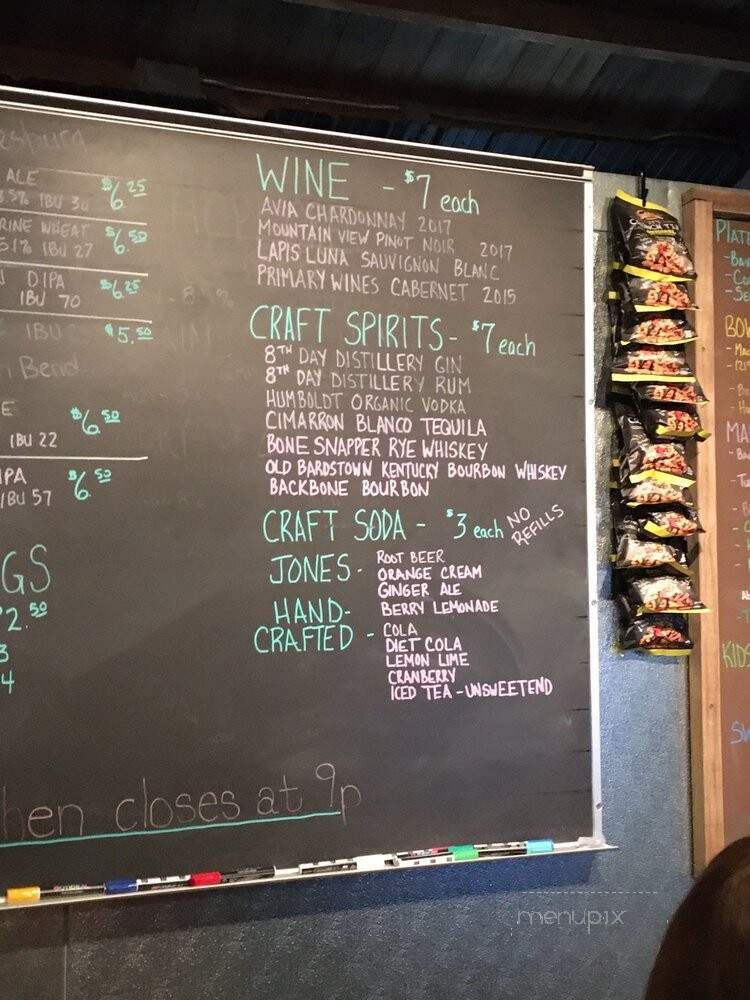 ALE
$6.25
IBU 30
RINE WHEAT
$6.50
5.1% IBU 27
DIPA
$6.25
IBU 70
IBU
$5.50
Bend
E
$6.50
IBU 22
IPA
$6.50
IBU 57
GS
2.50
3
4
hen closes at 9p
WINE - $7 each
AVIA CHARDONNAY 2017
MOUNTAIN VIEW PINOT NOIR 2017
LAPIS LUNA SAUVIGNON BLANC
PRIMARY WINES CABERNET 2015
CRAFT SPIRITS - $7 each
8TH DAY DISTILLERY GIN
8TH DAY DISTILLERY RUM
HUMBOLDT ORGANIC VODKA
CIMARRON BLANCO TEQUILA
BONE SNAPPER RYE WHISKEY
OLD BARDSTOWN KENTUCKY BOURBON WHISKEY
BACKBONE BOURBON
CRAFT SODA - $3 each NO REFILLS
JONES - ROOT BEER
ORANGE CREAM
GINGER ALE
BERRY LEMONADE
HAND-
CRAFTED - COLA
DIET COLA
LEMON LIME
CRANBERRY
ICED TEA - UNSWEETEND
PLAT
BOW
KIDS
menupix